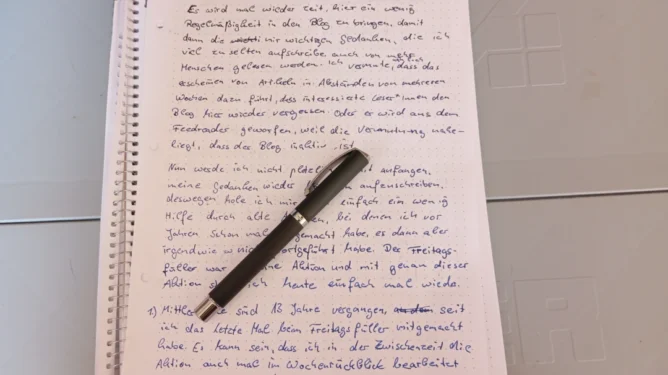 Es wird mal wieder Zeit, hier ein wenig
Regelmäßigkeit in den Blog zu bringen, damit
dann die mir wichtigen Gedanken, die ich
viel zu selten aufschreibe auch von mehr
Menschen gelesen werden. Ich vermute, dass das
erscheinen von Artikeln in Abständen von mehreren
Wochen dazu führt, dass interessierte Leser*innen den
Blog hier wieder vergessen. Oder er wird aus dem
Feedreader geworfen, weil die Vermutung nahe-
liegt, dass der Blog inaktiv ist.
Nun werde ich nicht anfangen,
meine Gedanken wieder aufzuschreiben.
deswegen hole ich einfach ein wenig
Hilfe durch alte bei denen ich vor
Jahren schon mal gemacht habe, es dann aber
irgendwie fortgeführt habe. Der Freitags-
füller war Aktion und mit genau dieser
Aktion ich heute einfach mal wieder.
1) sind 18 Jahre vergangen, seit
ich das letzte Mal beim Freitagsfüller mitgemacht
habe. Es kann sein, dass ich in der Zwischenzeit die
Aktion auch mal im Wochenrückblick bearbeitet